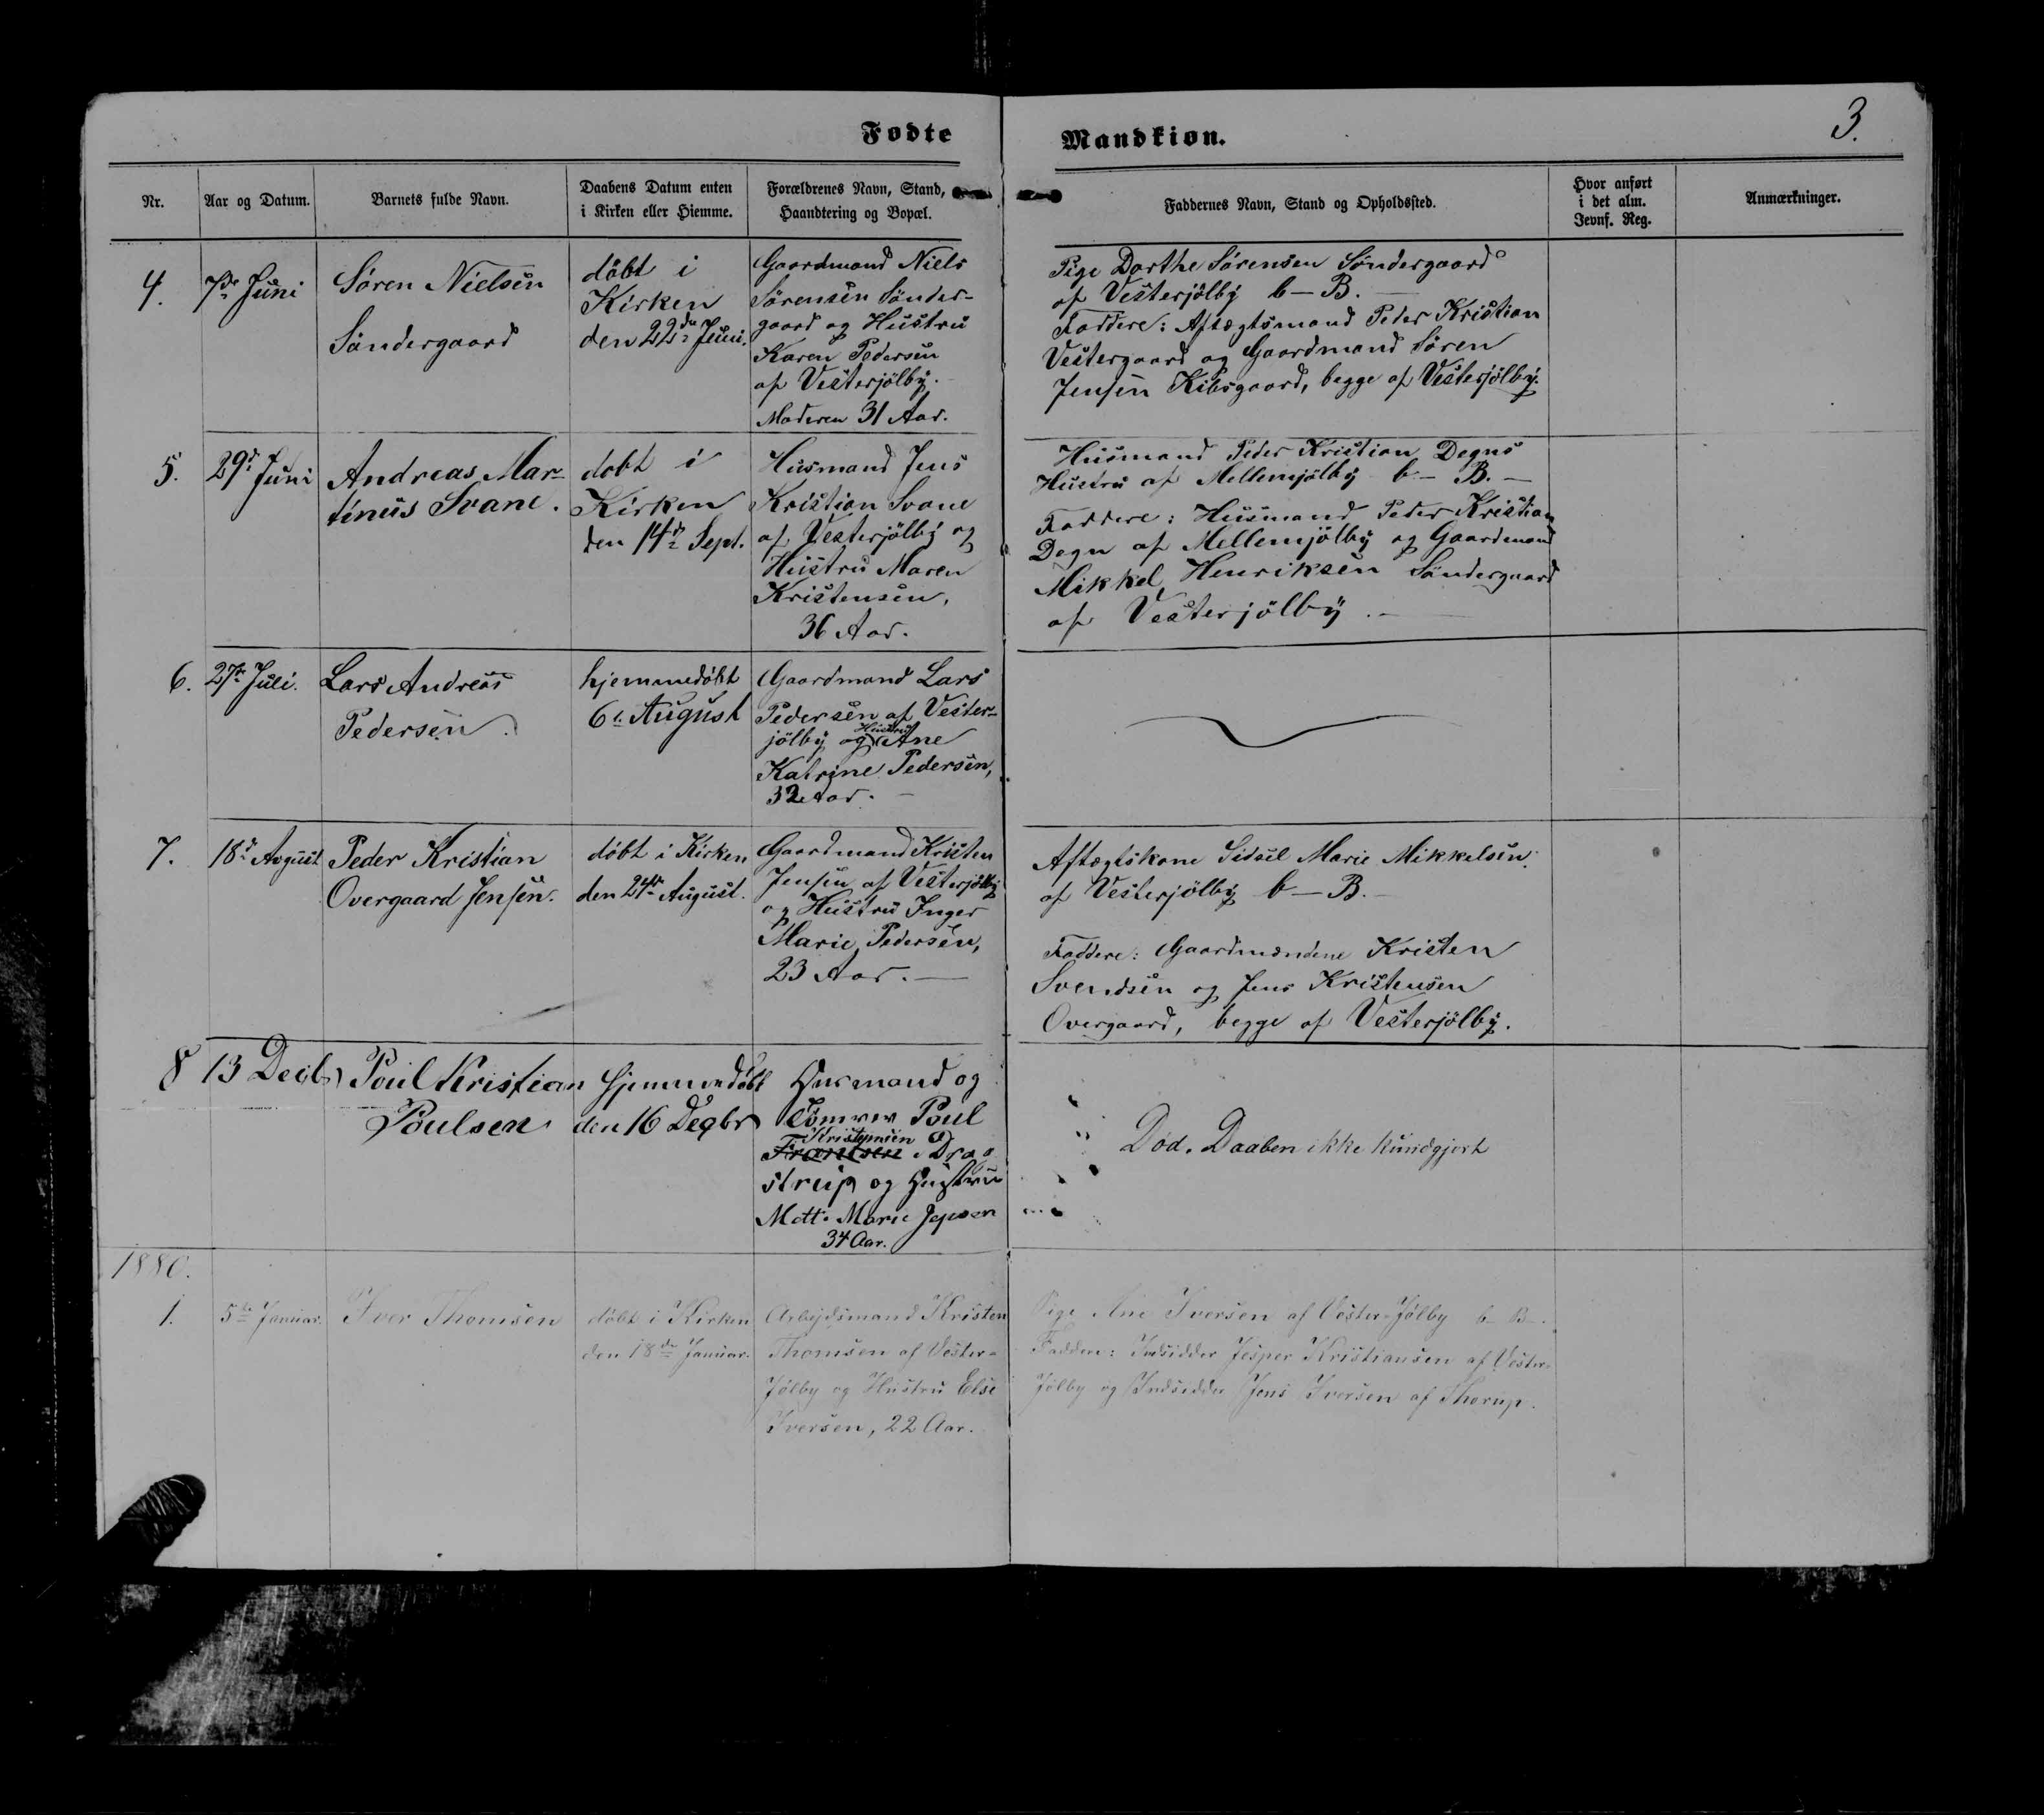 Fødte
Mandkiøn.
3.
Nr.
Aar og Datum.
Barnets fulde Navn.
Daabens Datum enten
i Kirken eller Hiemme.
Forældrenes Navn, Stand,
Haandtering og Bopæl.
Faddernes Navn, Stand og Opholdssted.
Hvor anført
i det alm.
Jevnf. Reg.
Anmærkninger.
4.
7de Juni
Søren Nielsen
Søndergaard
døbt i
Kirken
den 22de Juni.
Gaardmand Niels
Sørensen Sønder-
gaard og Hustru
Karen Pedersen
af Vesterjölby.
Moderen 31 Aar.
Pige Dorthe Sørensen Søndergaard
af Vesterjölby b—B.—
Faddere: Aftægtsmand Peder Kristian
Vestergaard og Gaardmand Søren
Jensen Kibsgaard, begge af Vesterjölby.
5.
29d Juni
Andreas Mar-
tinus Svane.
døbt i
Kirken
den 14de Sept.
Husmand Jens
Kristian Svane
af Vesterjölby og
Hustru Maren
Kristensen,
36 Aar.
Husmand Peder Kristian Degns
Hustru af Mellemjölby b—B.—
Faddere: Husmand Peder Kristian
Degn af Mellemjölby og Gaardmand
Mikkel Henriksen Søndergaard
af Vesterjölby.—
6.
27de Juli.
Lars Andreas
Pedersen.
hjemmedøbt
6te August
Gaardmand Lars
Pedersen af Vester-
jölby og Hustru Ane
Katrine Pedersen,
32 Aar.—
7.
18de August
Peder Kristian
Overgaard Jensen.
døbt i Kirken
den 24de August.
Gaardmand Kristen
Jensen af Vesterjölby
og Hustru Inger
Marie Pedersen,
23 Aar.—
Aftægtskone Sidsel Marie Mikkelsen
af Vesterjölby b—B.—
Faddere: Gaardmændene Kristen
Svendsen og Jens Kristensen
Overgaard, begge af Vesterjölby.
8
13 Decbr
Poul Kristian
Poulsen
hjemmedøbt
den 16 Decbr
Husmand og
Tømrer Poul
Kristensen
Frantsen Drag
strup og Hustru
Mette Marie Jepsen
34 Aar.
Død. Daaben ikke kundgjort
1880.
1.
5te Januar.
Iver Thomsen
døbt i Kirken
den 18de Januar.
Arbejdsmand Kristen
Thomsen af Vester-
Jølby og Hustru Else
Iversen, 22 Aar.
Pige Ane Iversen af Vester-Jølby b—B—.
Faddere: Indsidder Jesper Kristiansen af Vester-
Jølby og Indsidder Jens Iversen af Thorup.